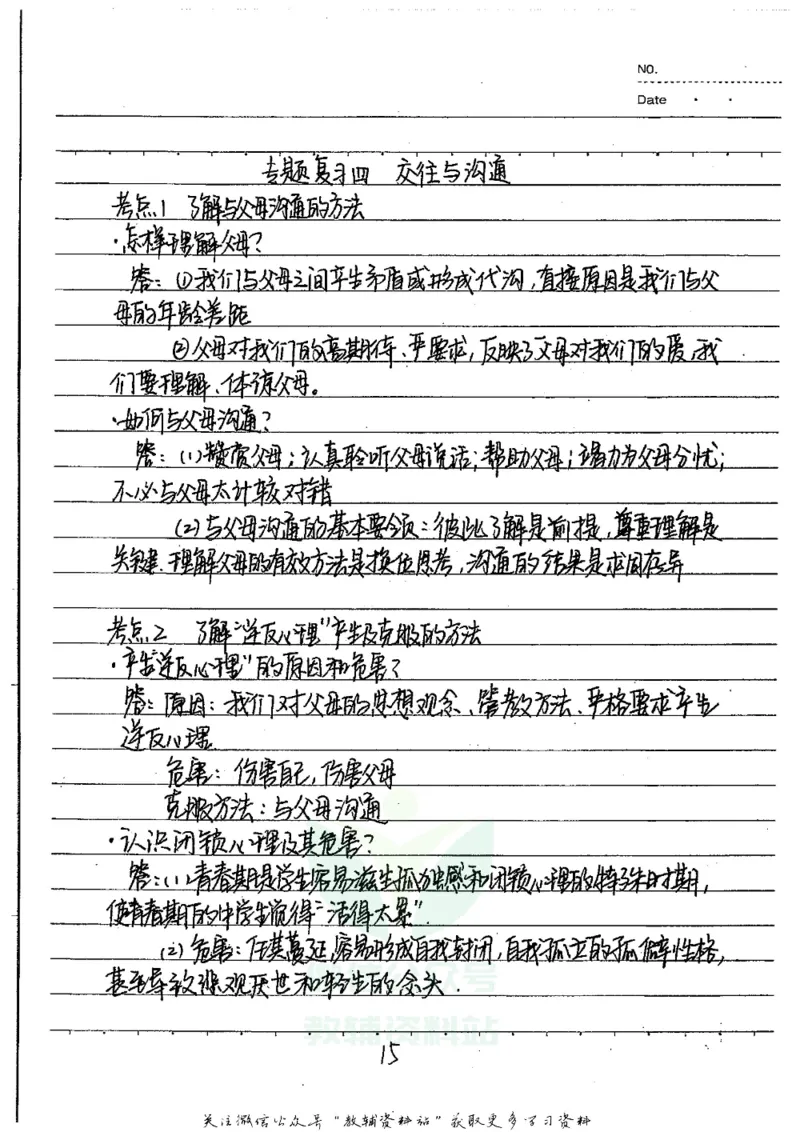 NO.
Date
专题复习四 交往与沟通
考点1 了解与父母沟通的方法
·怎样理解父母?
答: ①我们与父母之间产生矛盾或形成代沟,直接原因是我们与父
母的年龄差距
②父母对我们的高期待、严要求,反映了父母对我们的爱,我
们要理解、体谅父母。
·如何与父母沟通?
答: (1)赞赏父母;认真聆听父母说话;帮助父母;竭力为父母分忧;
不必与父母太计较对错
(2)与父母沟通的基本要领:彼此了解是前提,尊重理解是
关键.理解父母的有效方法是换位思考,沟通的结果是求同存异
考点2 了解“逆反心理”产生及克服的方法
·产生“逆反心理”的原因和危害?
答: 原因:我们对父母的思想观念、管教方法、严格要求产生
逆反心理
危害: 伤害自己,伤害父母
克服方法:与父母沟通
·认识闭锁心理及其危害?
答:(1)青春期是学生容易滋生孤独感和闭锁心理的特殊时期,
使青春期的中学生觉得“活得太累”.
(2)危害:任其蔓延,容易形成自我封闭,自我孤立的孤僻性格,
甚至导致悲观厌世和轻生的念头.
教辅资料站
15
关注微信公众号“教辅资料站”获取更多学习资料